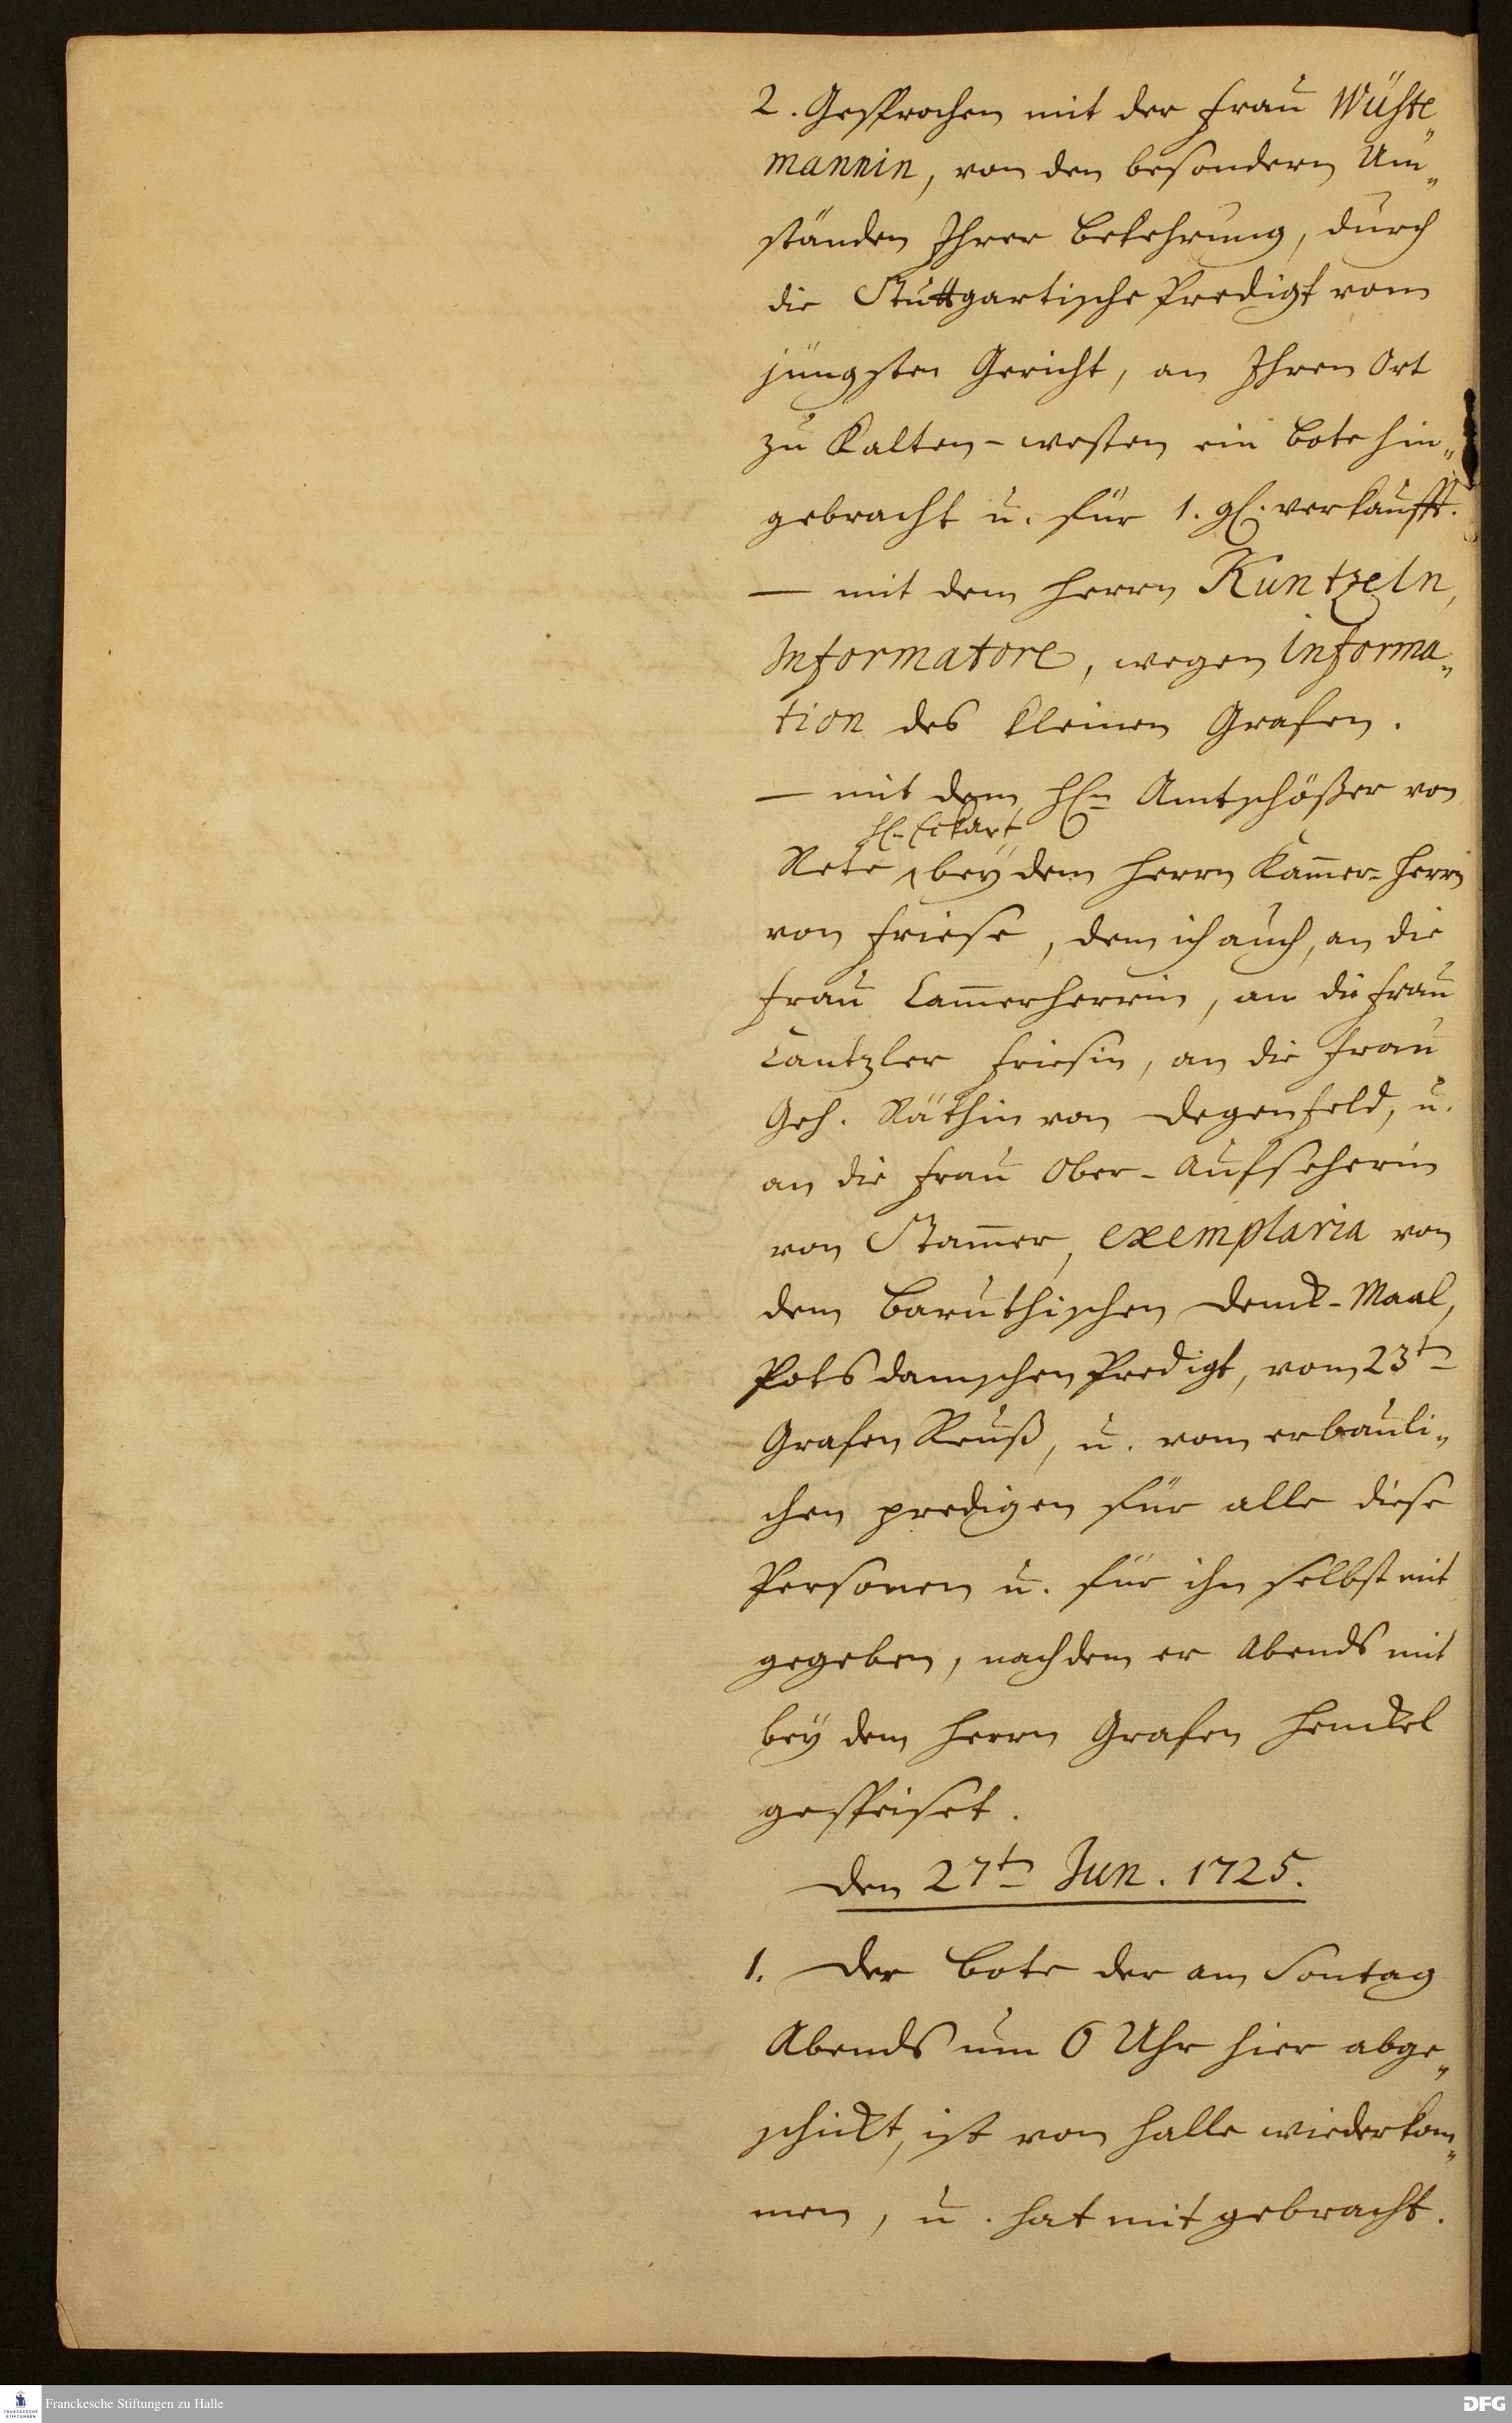 2. Gesprochen mit der Frau Wüste„
mannin, von den besondern Um„
ständen Ihrer Bekehrung, durch
die Stuttgartische Predigt vom
jüngsten Gericht, an Ihren Ort
zu Kalten-westen ein Bote hin„
gebracht u. für 1. gl. verkaufft.
— mit dem Herrn Kuntzeln,
Informatore, wegen informa„
tion des kleinen Grafen.
— mit dem Hln Amtschößer von
Hl. Eckart
Rete bey dem Herrn Kam̅er-Herrn
von Friese, dem ich auch, an die
Frau Cam̅erherrin, an die Frau
Cantzler Friesin, an die Frau
Geh. Räthin von Degenfeld, u.
an die Frau Ober-Aufseherin
von Stam̅er, exemplaria von
dem Baruthischen Denck-Maal,
Potsdamschen Predigt, vom 23ten
Grafen Reuß, u. vom erbauli„
chen predigen für alle diese
Personen u. für ihn selbst mit
gegeben, nachdem er Abends mit
bey dem Herrn Grafen Henckel
gespeiset.
Den 27ten Jun. 1725.
1. Der Bote der am Sontag
Abends um 6 Uhr hier abge„
schickt, ist von Halle wiederkom„
men, u. hat mit gebracht.
Franckesche Stiftungen zu Halle
FRANCKESCHE STIFTUNGEN
DFG